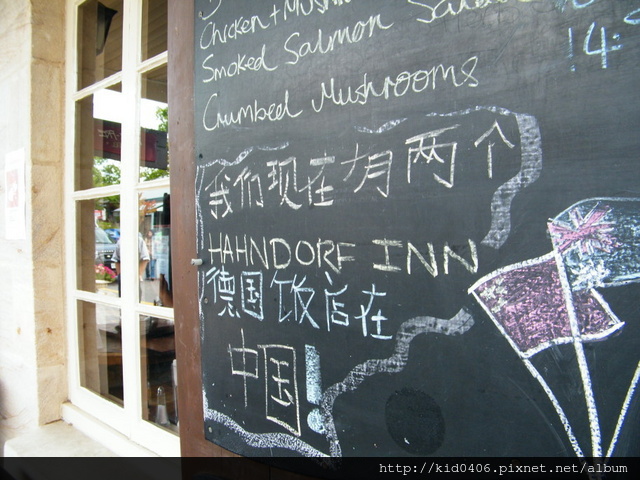 Chicken + Mush
Smoked Salmon Sala
Crumbed Mushrooms
14:
我们现在有两个
HAHNDORF INN
德国饭店在
中国!
http://kid0406.pixnet.net/album